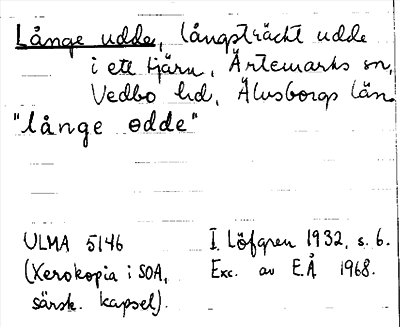 Långe udde, långsträckt udde
i ett tjärn, Ärtemarks sn,
Vedbo hd, Älvsborgs län.
"långe odde"
ULMA 5146
(Xerokopia i SOA,
särsk. kapsel).
I. Löfgren 1932, s. 6.
Exc. av E.Å 1968.